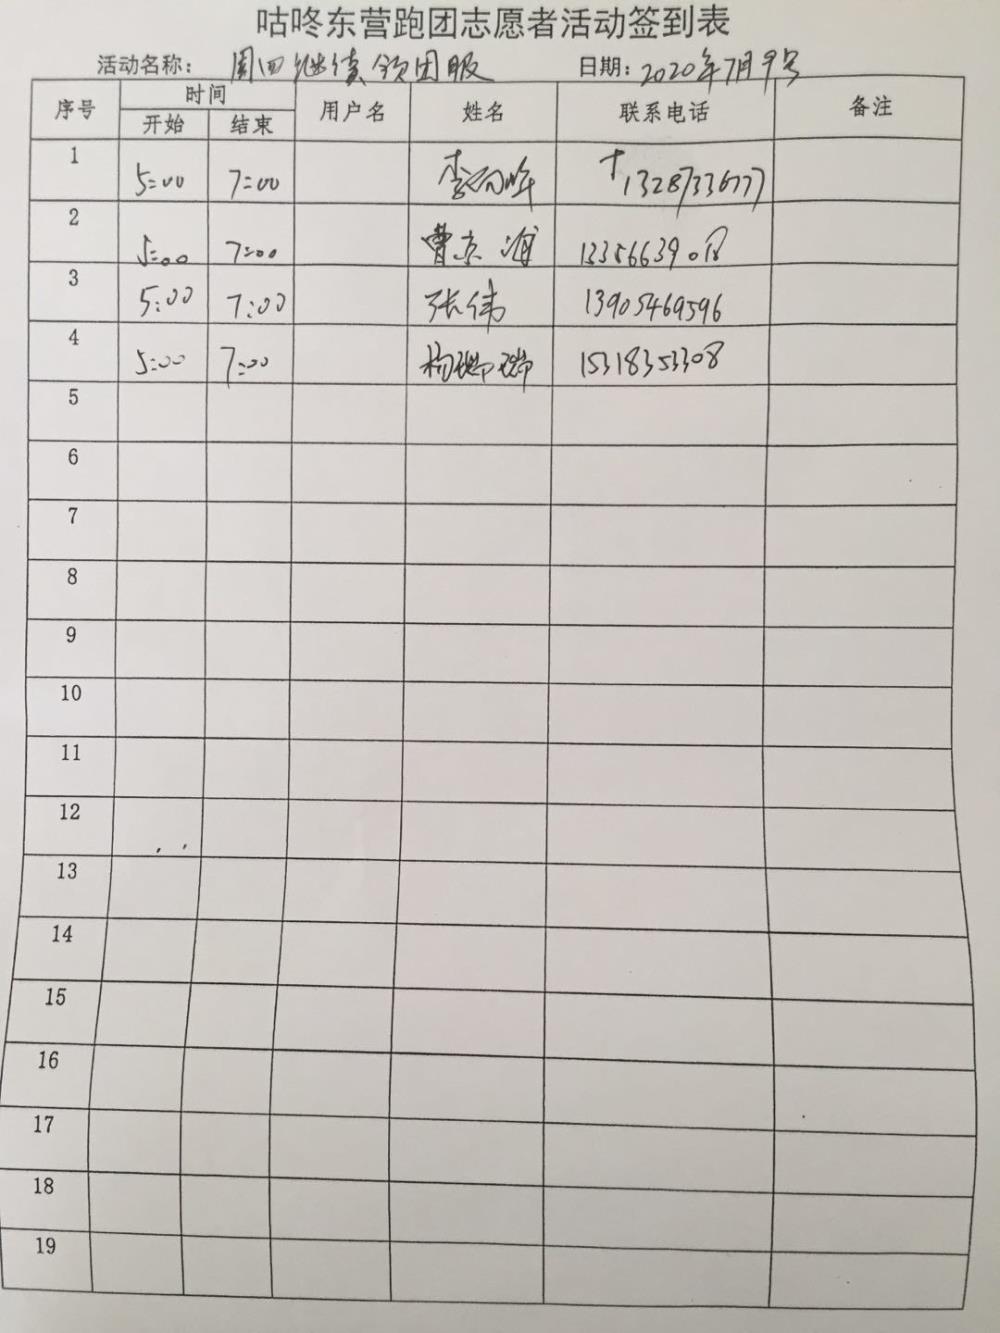 咕咚东营跑团志愿者活动签到表
活动名称: 周四继续领团服 日期: 2020年7月9号
序号 时间 用户名 姓名 联系电话 备注
开始 结束
1 5:00 7:00 李 13287336777
2 5:00 7:00 曹京海 133566390
3 5:00 7:00 张伟 13905469596
4 5:00 7:00 杨瑞瑞 15318353308
5
6
7
8
9
10
11
12
13
14
15
16
17
18
19